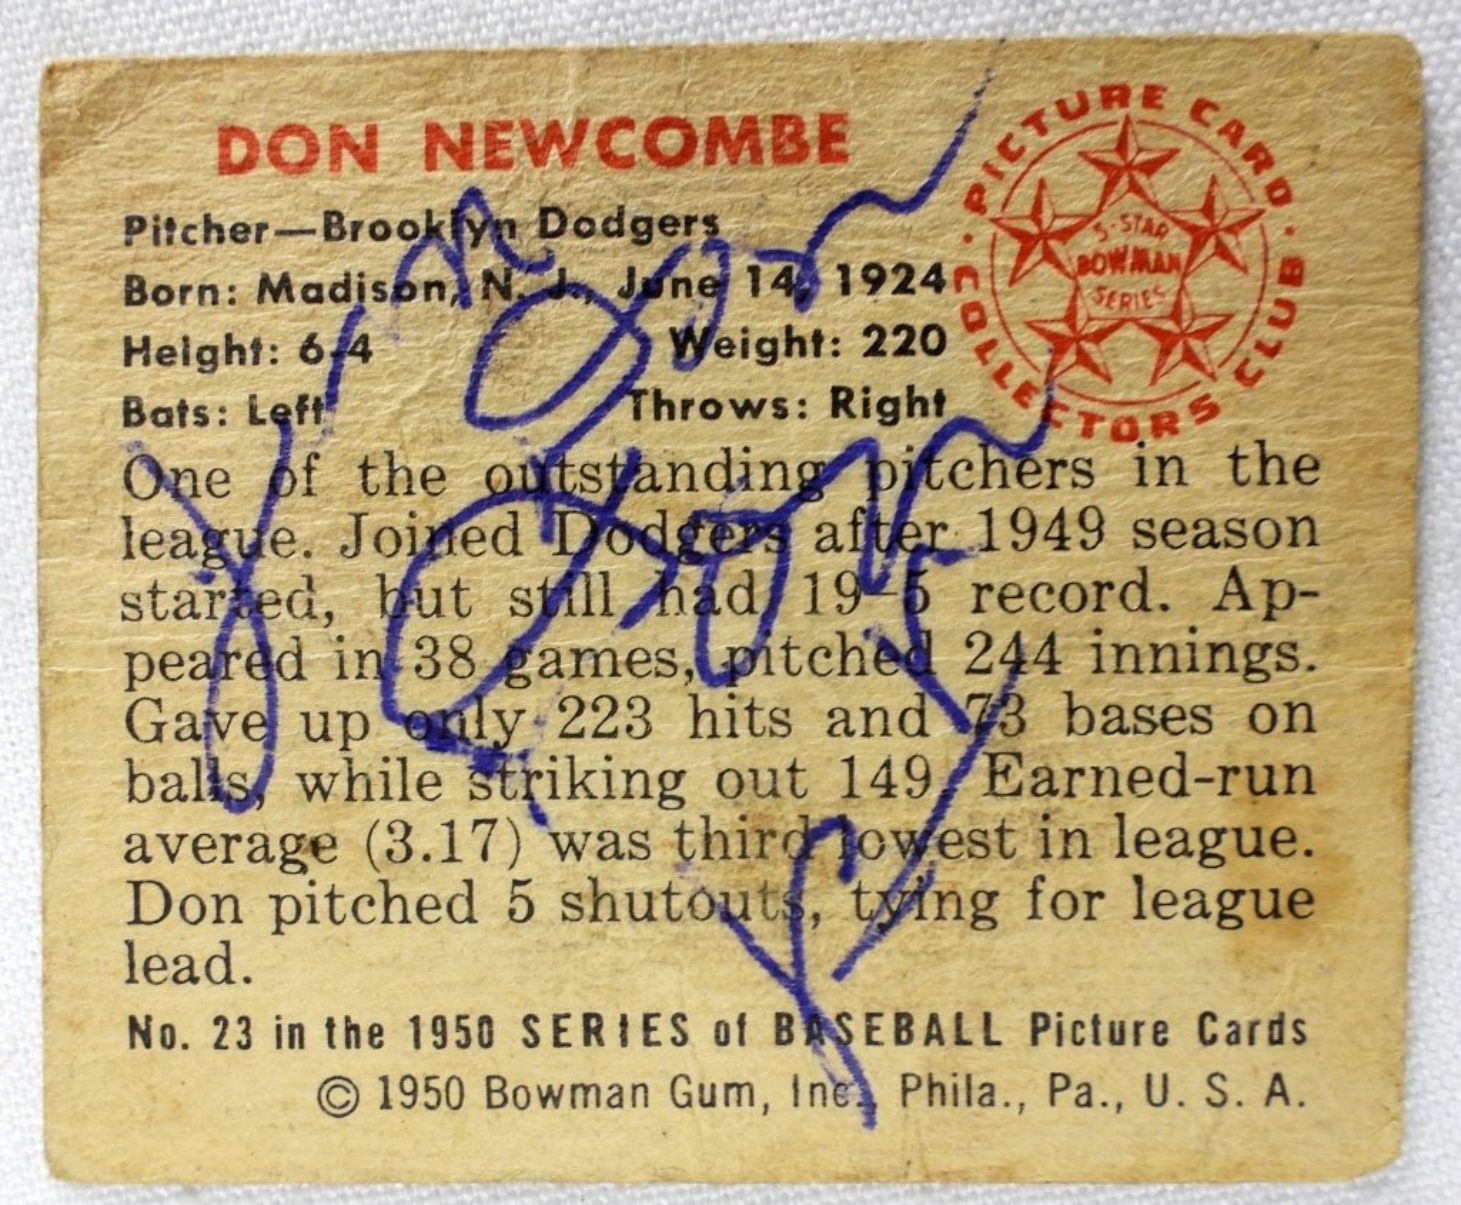 DON NEWCOMBE
PICTURE CARD COLLECTORS CLUB
5-STAR
BOWMAN
SERIES
Pitcher—Brooklyn Dodgers
Born: Madison, N. J., June 14, 1924
Height: 6-4 Weight: 220
Bats: Left Throws: Right
One of the outstanding pitchers in the
league. Joined Dodgers after 1949 season
started, but still had 19-5 record. Ap-
peared in 38 games, pitched 244 innings.
Gave up only 223 hits and 73 bases on
balls, while striking out 149. Earned-run
average (3.17) was third lowest in league.
Don pitched 5 shutouts, tying for league
lead.
No. 23 in the 1950 SERIES of BASEBALL Picture Cards
© 1950 Bowman Gum, Inc., Phila., Pa., U. S. A.
Don